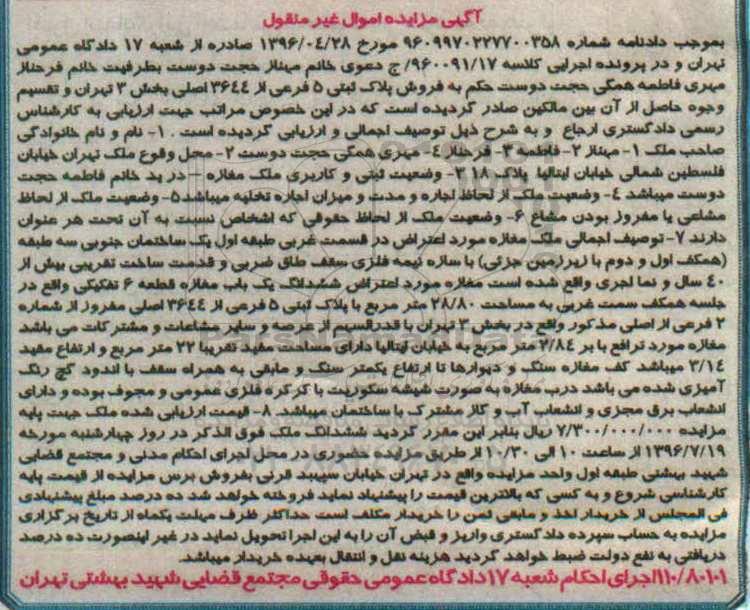 آگهی مزایده اموال غیر منقول
بموجب دادنامه شماره ۹۶۰۹۹۷۰۲۲۷۷۰۰۳۵۸ مورخ ۱۳۹۶/۰۴/۲۸ صادره از شعبه ۱۷ دادگاه عمومی
تهران و در پرونده اجرایی کلاسه ۹۶۰۰۹۱/۱۷/ ج دعوی خانم مهناز حجت دوست بطرفیت خانم فرحناز
مهری فاطمه همگی حجت دوست حکم به فروش پلاک ثبتی ۵ فرعی از ۳۶۴۴ اصلی بخش ۳ تهران و تقسیم
وجوه حاصل از آن بین مالکین صادر گردیده است که در این خصوص مراتب جهت ارزیابی به کارشناس
رسمی دادگستری ارجاع و به شرح ذیل توصیف اجمالی و ارزیابی گردیده است . ۱- نام و نام خانوادگی
صاحب ملک ۱- مهناز ۲- فاطمه ۳- فرحناز ۴- مهری همگی حجت دوست ۲- محل وقوع ملک تهران خیابان
فلسطین شمالی خیابان ایتالیا پلاک ۱۸ ۳- وضعیت ثبتی و کاربری ملک مغازه – در ید خانم فاطمه حجت
دوست میباشد ۴- وضعیت ملک از لحاظ اجاره و مدت و میزان اجاره تخلیه میباشد ۵- وضعیت ملک از لحاظ
مشاعی یا مفروز بودن مشاع ۶- وضعیت ملک از لحاظ حقوقی که اشخاص نسبت به آن تحت هر عنوان
دارند ۷- توصیف اجمالی ملک مغازه مورد اعتراض در قسمت غربی طبقه اول یک ساختمان جنوبی سه طبقه
(همکف اول و دوم با زیرزمین جزئی) با سازه نیمه فلزی سقف طاق ضربی و قدمت ساخت تقریبی بیش از
۴۰ سال و نما اجری واقع شده است مغازه مورد اعتراض ششدانگ یک باب مغازه قطعه ۶ تفکیکی واقع در
جلسه همکف سمت غربی به مساحت ۲۸/۸۰ متر مربع با پلاک ثبتی ۵ فرعی از ۳۶۴۴ اصلی مفروز از شماره
۲ فرعی از اصلی مذکور واقع در بخش ۳ تهران با قدرالسهم از عرصه و سایر مشاعات و مشترکات می باشد
مغازه مورد ترافع با بر ۲/۸۴ متر مربع به خیابان ایتالیا دارای مساحت مفید تقریبا ۲۲ متر مربع و ارتفاع مفید
۳/۱۴ میباشد کف مغازه سنگ و دیوارها تا ارتفاع یکمتر سنگ و مابقی به همراه سقف با اندود گچ رنگ
آمیزی شده می باشد درب مغازه به صورت شیشه سکوریت با کرکره فلزی عمومی و مجوف بوده و دارای
انشعاب برق مجزی و انشعاب آب و گاز مشترک با ساختمان میباشد. ۸- قیمت ارزیابی شده ملک جهت پایه
مزایده ۷/۳۰۰/۰۰۰/۰۰۰ ریال بنابر این مقرر گردید ششدانگ ملک فوق الذکر در روز چهارشنبه مورخه
۱۳۹۶/۷/۱۹ از ساعت ۱۰ الی ۱۰/۳۰ از طریق مزایده حضوری در محل اجرای احکام مدنی و مجتمع قضایی
شهید بهشتی طبقه اول واحد مزایده واقع در تهران خیابان سپهبد قرنی بفروش برس مزایده از قیمت پایه
کارشناسی شروع و به کسی که بالاترین قیمت را پیشنهاد نماید فروخته خواهد شد ده درصد مبلغ پیشنهادی
فی المجلس از خریدار اخذ و مابقی ثمن را خریدار مکلف است حداکثر ظرف مهلت یکماه از تاریخ برگزاری
مزایده به حساب سپرده دادگستری واریز و قبض آن را به این اجرا تحویل نماید در غیر اینصورت ده درصد
دریافتی به نفع دولت ضبط خواهد گردید هزینه نقل و انتقال بعهده خریدار میباشد.
۱۱۰/۸۰۱۰۱ اجرای احکام شعبه ۱۷ دادگاه عمومی حقوقی مجتمع قضایی شهید بهشتی تهران